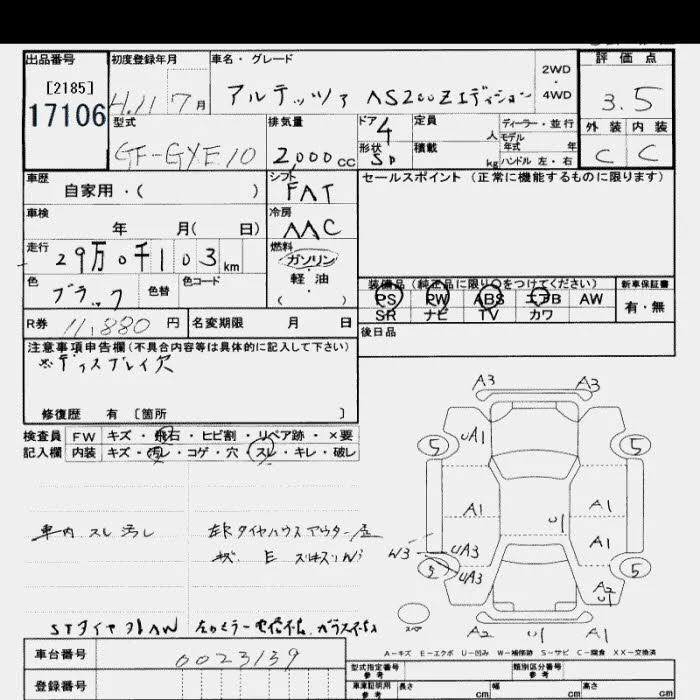 出品番号 初度登録年月 車名・グレード 評価点
[2185]
17106
H.11 7月 アルテッツァ AS200Zエディション 2WD・4WD 3.5
型式 排気量 ドア 定員 人 ディーラー・並行 外装 内装
GF-GYE10 2,000cc 4 モデル年式 年
形状 積載 kg ハンドル 左・右 C C
車歴 シフト セールスポイント(正常に機能するものに限ります)
自家用・( ) FAT
車検 冷房
年 月( 日) AAC
走行 燃料
29万0千103km ガソリン
軽油
( )
色 色替 色コード
ブラック
装備品(純正品に限り○をつけてください) 新車保証書
PS PW ABS エアB AW 有・無
SR ナビ TV カワ
R券 11,880円 名変期限 月 日 後日品
注意事項申告欄(不具合内容等は具体的に記入して下さい)
※ディスプレイ欠
修復歴 有 [箇所 ]
検査員 FW キズ・飛石・ヒビ割・リペア跡・×要
記入欄 内装 キズ・汚レ・コゲ・穴・スレ・キレ・破レ
A3 A3
5 UA1 5
A1 A1
U1 A1
W3 UA3
5 UA3 5
A2 U1
A2 U1 A1
車内 スレ 汚レ
STタイヤ
A-キズ E-エクボ U-凹み W-補修跡 S-サビ C-腐食 XX-交換済
車台番号 0023139 型式指定番号 参考 類別区分番号 参考
登録番号 車庫証明用 参考 長さ cm 幅 cm 高さ cm